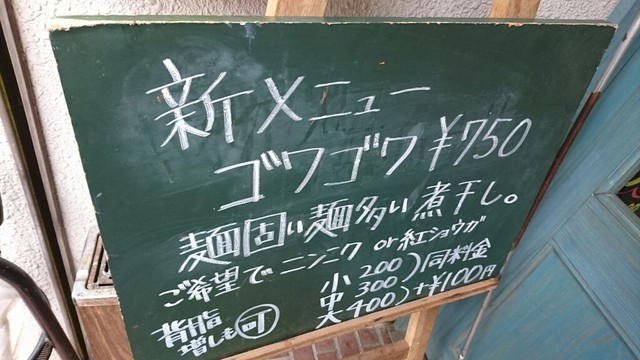 新メニュー
ゴワゴワ ¥750
麺固い麺多い煮干し。
ご希望でニンニク or 紅ショウガ
小 200
中 300 ) 同料金
大 400 ) + ¥100円
背脂
増しも可